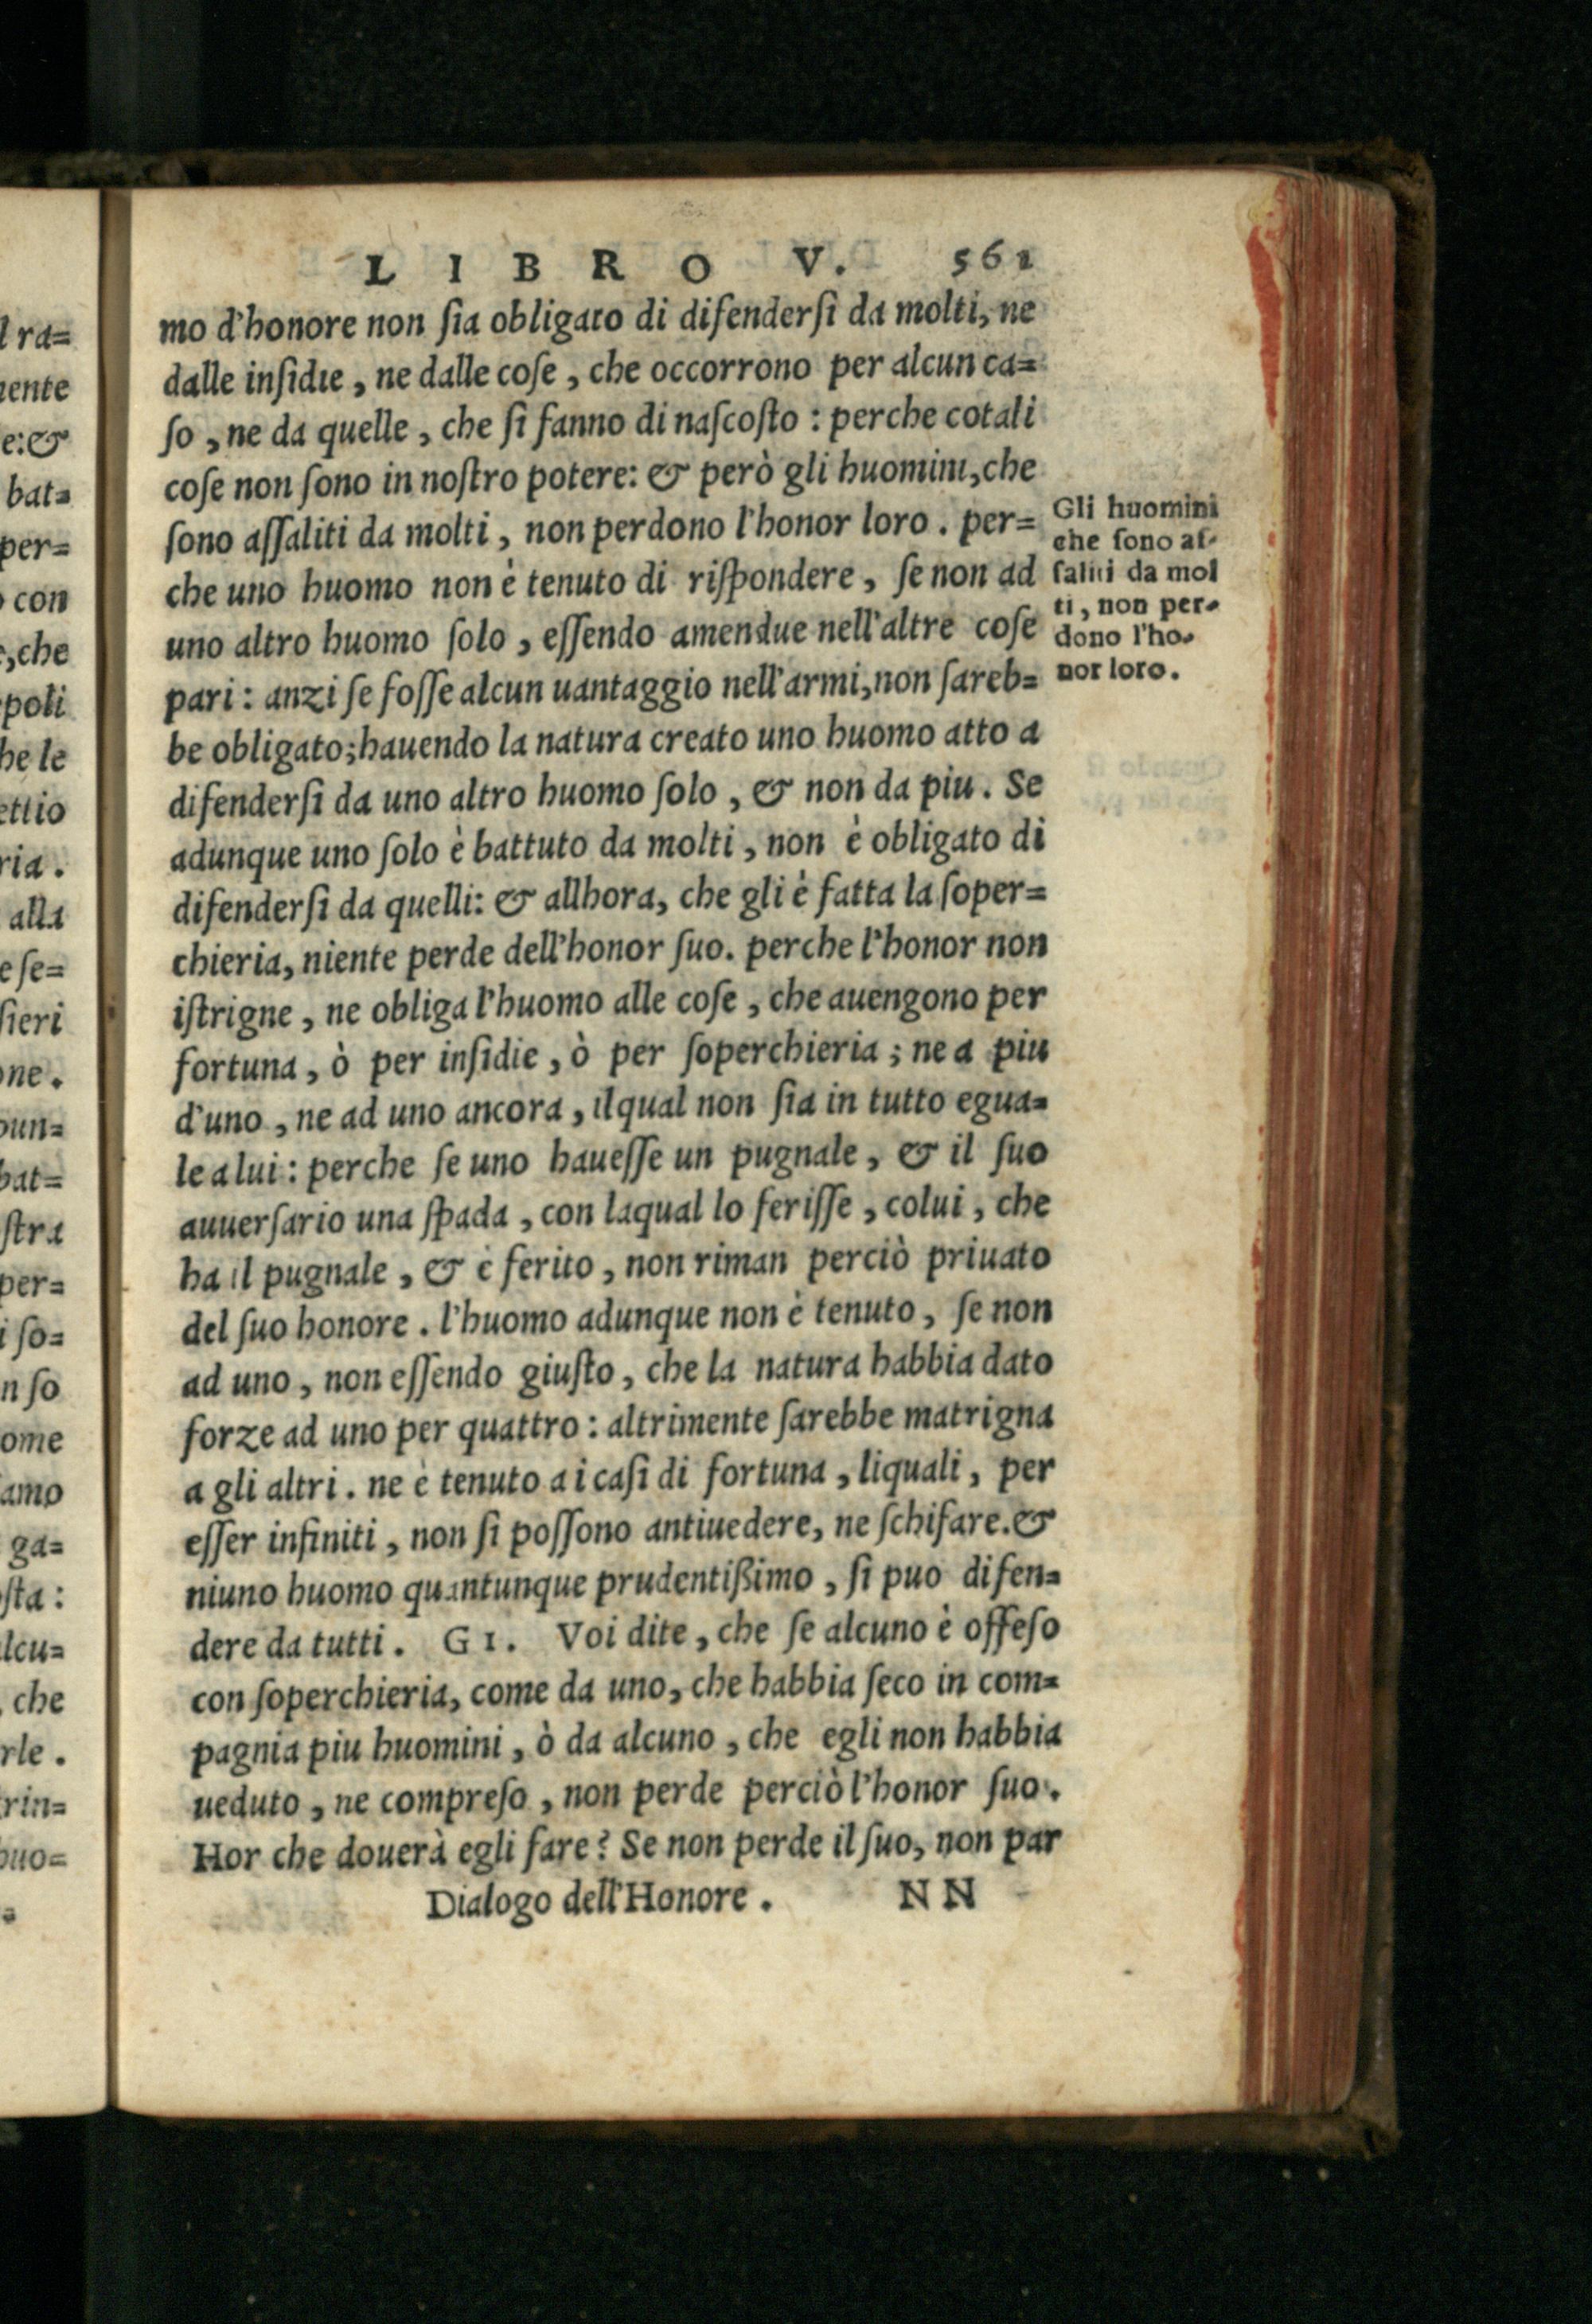 LIBRO V. 561
mo d'honore non ſia obligato di difenderſi da molti, ne
dalle inſidie, ne dalle coſe, che occorrono per alcun ca=
ſo, ne da quelle, che ſi fanno di naſcoſto: perche cotali
coſe non ſono in noſtro potere: & però gli huomini, che
ſono aſſaliti da molti, non perdono l'honor loro. per=
che uno huomo non è tenuto di riſpondere, ſe non ad
uno altro huomo ſolo, eſſendo amendue nell'altre coſe
pari: anzi ſe foſſe alcun uantaggio nell'armi, non ſareb=
be obligato; hauendo la natura creato uno huomo atto a
difenderſi da uno altro huomo ſolo, & non da piu. Se
adunque uno ſolo è battuto da molti, non è obligato di
difenderſi da quelli: & allhora, che gli è fatta la ſoper=
chieria, niente perde dell'honor ſuo. perche l'honor non
iſtrigne, ne obliga l'huomo alle coſe, che auengono per
fortuna, ò per inſidie, ò per ſoperchieria; ne a piu
d'uno, ne ad uno ancora, ilqual non ſia in tutto egua=
le a lui: perche ſe uno haueſſe un pugnale, & il ſuo
auuerſario una ſpada, con laqual lo feriſſe, colui, che
ha il pugnale, & è ferito, non riman perciò priuato
del ſuo honore. l'huomo adunque non è tenuto, ſe non
ad uno, non eſſendo giuſto, che la natura habbia dato
forze ad uno per quattro: altrimente ſarebbe matrigna
a gli altri. ne è tenuto a i caſi di fortuna, liquali, per
eſſer infiniti, non ſi poſſono antiuedere, ne ſchifare. &
niuno huomo quantunque prudentißimo, ſi puo difen=
dere da tutti. GI. Voi dite, che ſe alcuno è offeſo
con ſoperchieria, come da uno, che habbia ſeco in com=
pagnia piu huomini, ò da alcuno, che egli non habbia
ueduto, ne compreſo, non perde perciò l'honor ſuo.
Hor che douerà egli fare? Se non perde il ſuo, non par
Dialogo dell'Honore. NN
Gli huomini
che ſono aſ-
ſaliti da mol
ti, non per-
dono l'ho-
nor loro.
l ra=
mente
e: &
bat=
per=
o con
e, che
poli
he le
ettio
ria.
alla
e ſe=
ſieri
one.
oun=
bat=
ſtra
per=
i ſo=
n ſo
ome
amo
ga=
oſta:
lcu=
, che
rle.
rin=
huo=